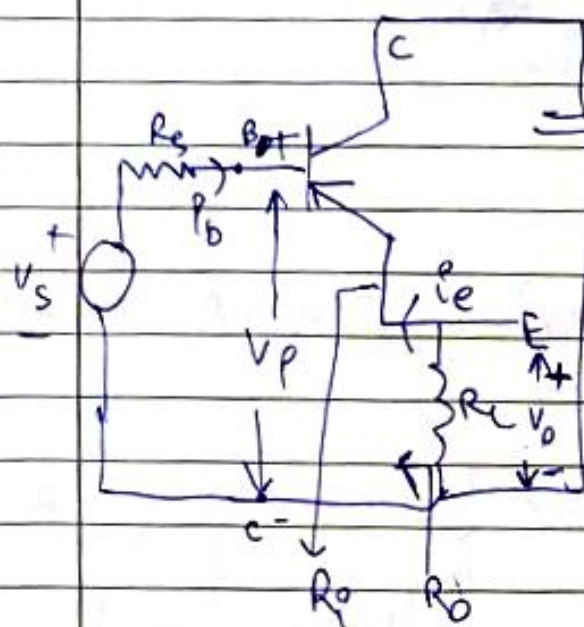 C
Rs
B +
ib
+
Vs
-
ie
Vi
E
+
RL
Vo
-
c -
Ri
Ro